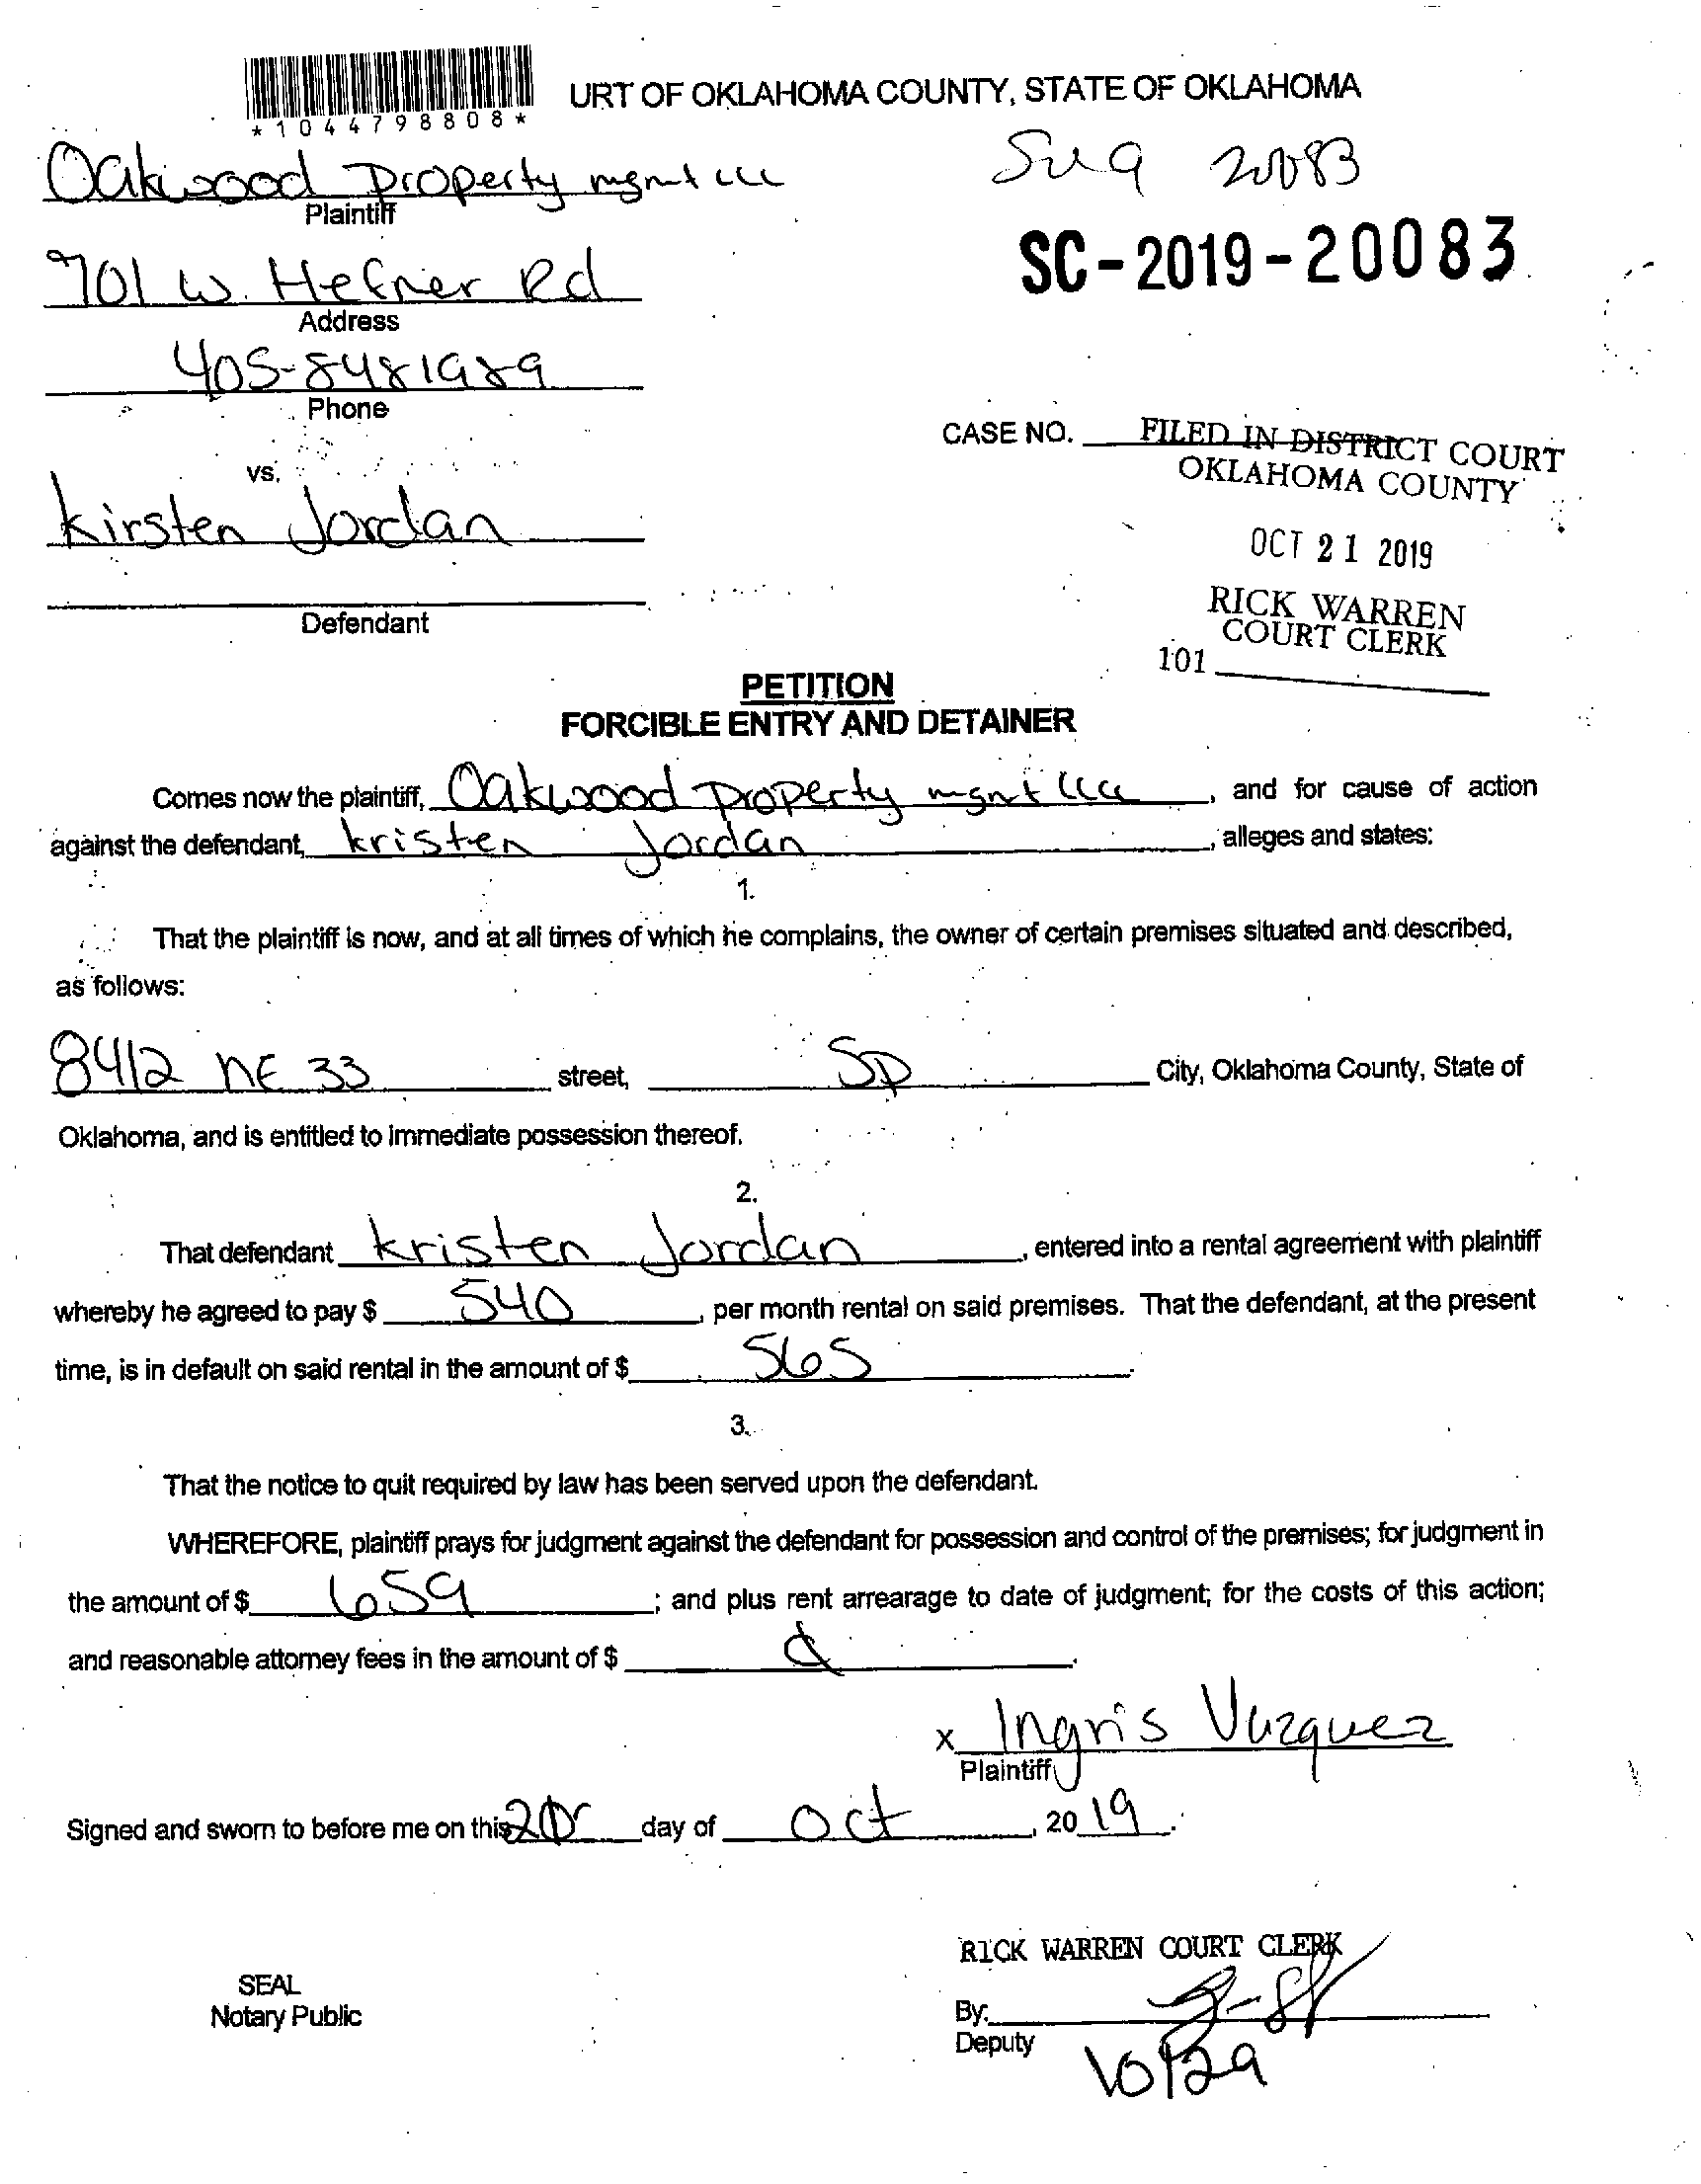 URT OF OKLAHOMA COUNTY, STATE OF OKLAHOMA
*1044798808*
Oakwood Property mgmt llc
Plaintiff
20083
SC-2019-20083
701 W. Hefner Rd
Address
405-8481989
Phone
CASE NO.
FILED IN DISTRICT COURT
OKLAHOMA COUNTY
vs.
Kirsten Jordan
OCT 21 2019
RICK WARREN
COURT CLERK
Defendant
101
PETITION
FORCIBLE ENTRY AND DETAINER
Comes now the plaintiff, Oakwood property mgmt llc, and for cause of action
against the defendant, kristen Jordan, alleges and states:
1.
That the plaintiff is now, and at all times of which he complains, the owner of certain premises situated and described,
as follows:
8412 NE 33 street, SP City, Oklahoma County, State of
Oklahoma, and is entitled to immediate possession thereof.
2.
That defendant kristen Jordan, entered into a rental agreement with plaintiff
whereby he agreed to pay $ 540, per month rental on said premises. That the defendant, at the present
time, is in default on said rental in the amount of $ 565.
3.
That the notice to quit required by law has been served upon the defendant.
WHEREFORE, plaintiff prays for judgment against the defendant for possession and control of the premises; for judgment in
the amount of $ 659; and plus rent arrearage to date of judgment; for the costs of this action;
and reasonable attorney fees in the amount of $
x Ingris Vazquez
Plaintiff
Signed and sworn to before me on this day of Oct, 2019.
RICK WARREN COURT CLERK
SEAL
Notary Public
By:
Deputy